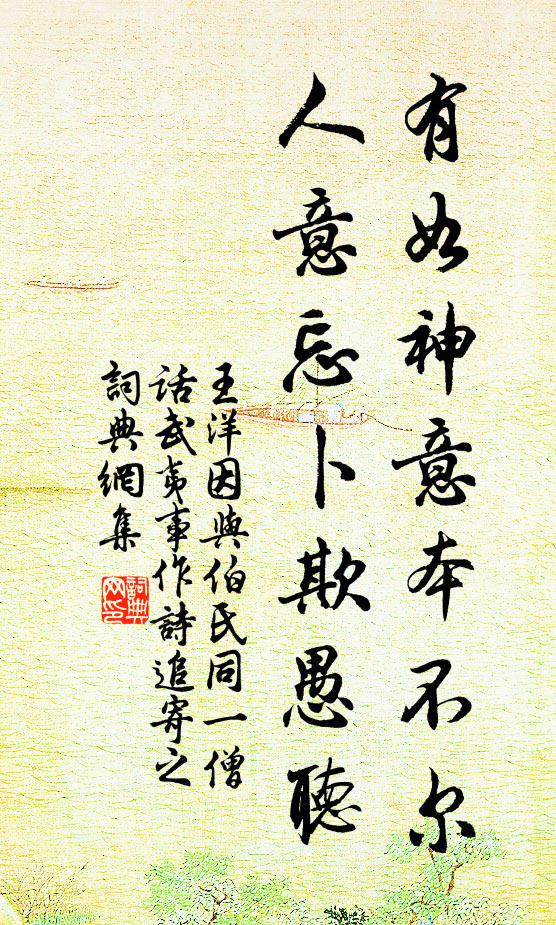 有如神意本不尔
人意忘卜欺愚聽
王洋因與伯氏同一僧
话武夷事作詩追寄之
詞典網集
詞典
网印